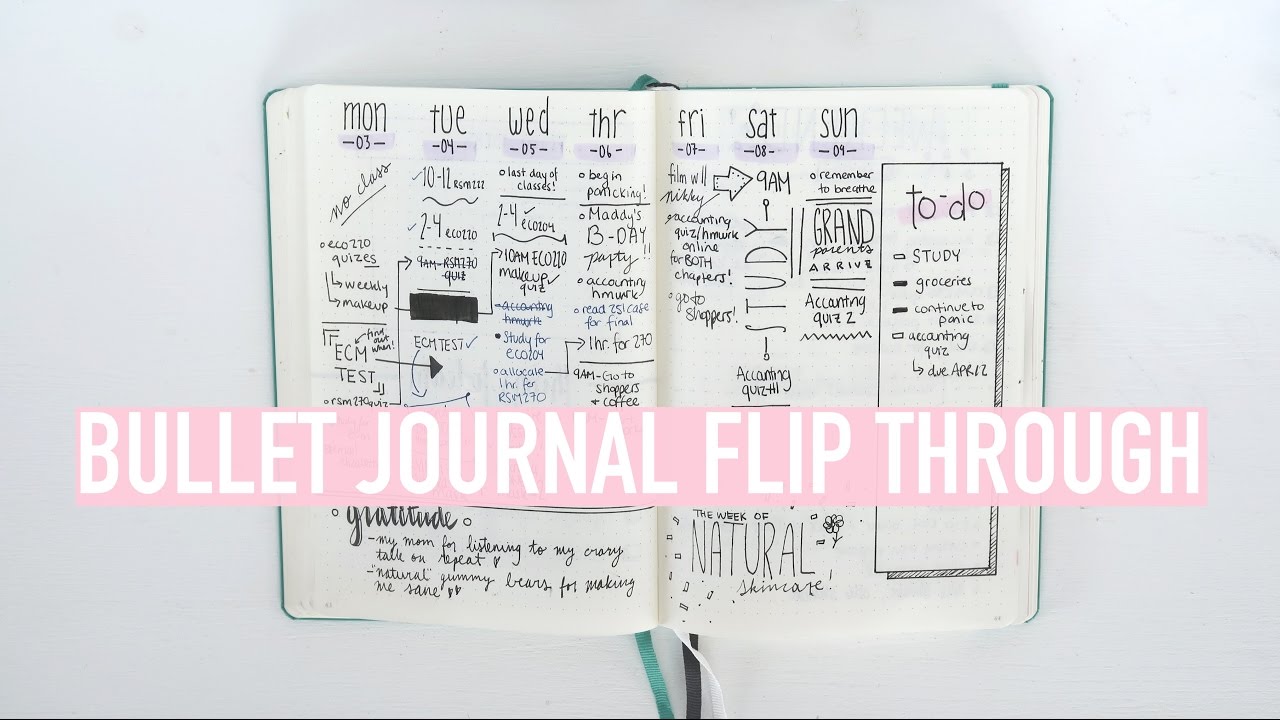 mon
-03-
no class
eco220
quizes
weekly
makeup
ECM
TEST
find out
when!
rsm270 quiz
tue
-04-
10-12 RSM222
2-4 eco220
9am-RSM270
quiz
ECM TEST
wed
-05-
last day of
classes!
2-4 eco204
10AM ECO220
makeup
quiz
accounting
hmwrk
Study for
eco204
allocate
1hr. for
RSM270
thr
-06-
begin
panicking!
Maddy's
B-DAY
party!!
accounting
hmwrk
read 251 case
for final
1hr for 270
9AM-Go to
shoppers
& coffee
fri
-07-
film w/
nikky
accounting
quiz/hmwrk
online
for BOTH
chapters!
go to
shoppers!
sat
-08-
9AM
STUDY
Accanting
quiz #1
sun
-09-
remember
to breathe
GRAND
parents
ARRIVE
Accanting
quiz 2
to-do
STUDY
groceries
continue to
panic
accanting
quiz
due APR 12
BULLET JOURNAL FLIP THROUGH
gratitude
-my mom for listening to my crazy
talk on repeat
-'natural' gummy bears for making
me sane
THE WEEK OF
NATURAL
skincare!